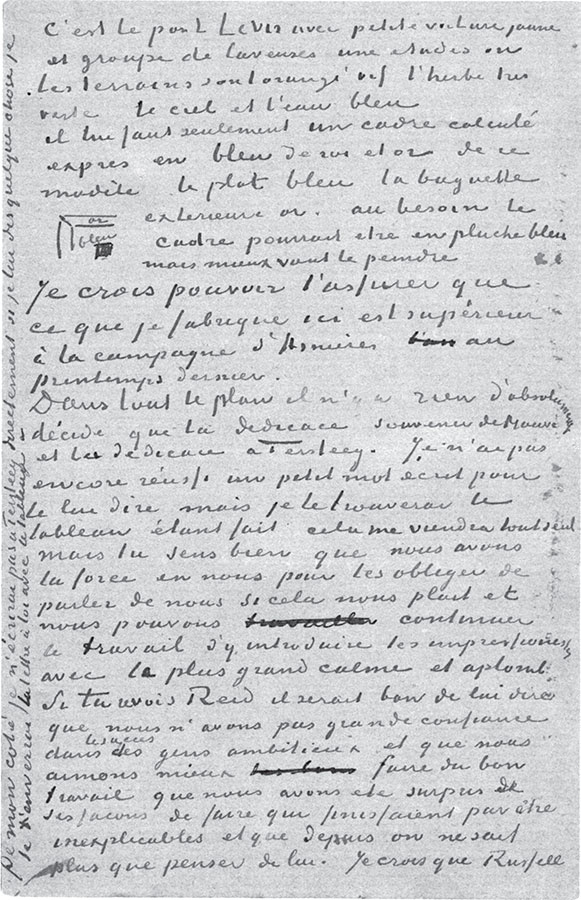 c'est le pont Levis avec petite voiture jaune
et groupe de laveuses une etudes ou
les terrains sont orangé vif l'herbe tres
verte le ciel et l'eau bleu
il lui faut seulement un cadre calculé
expres en bleu de roi et or de ce
modèle le plat bleu la baguette
or
bleu
exterieure or. au besoin le
cadre pourrait etre en pluche bleu
mais mieux vaut le peindre
Je crois pouvoir t'assurer que
ce que je fabrique ici est supérieur
à la campagne d'Asnieres au
printemps dernier.
Dans tout le plan il n'y a rien d'absolument
décidé que la dedicace souvenir de Mauve
et la dédicace a Tersteeg. Je n'ai pas
encore réussi un petit mot ecrit pour
le lui dire mais je le trouverai le
tableau étant fait cela me viendra tout seul
mais tu sens bien que nous avons
la force en nous pour les obliger de
parler de nous si cela nous plait et
nous pouvons travailler continuer
le travail d'y introduire les impressionistes
avec le plus grand calme et aplomb.
Si tu vois Reid il serait bon de lui dire
que nous n'avons pas grande confiance
dans les gens ambitieux et que nous
aimons mieux faire du bon
travail que nous avons ete surpris de
ses facons de faire qui finissaient par être
inexplicables et que depuis on ne sait
plus que penser de lui. Je crois que Russell
De mon coté je n'ecrirai pas a Tersteeg directement si je lui dis quelque chose je
te t'enverrai la lettre à lui avec le tableau à